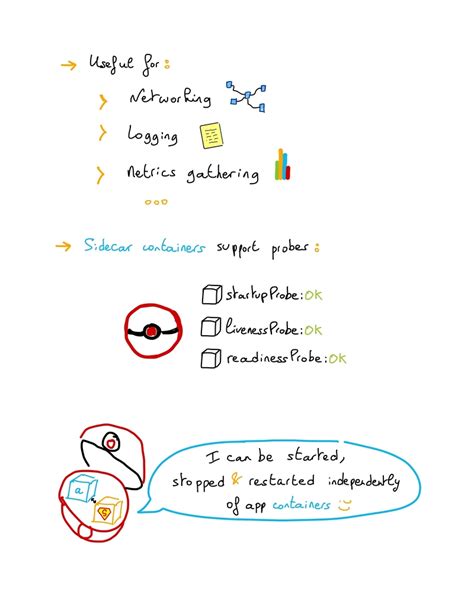 → Useful for:
> Networking
> Logging
> Metrics gathering
ooo
→ Sidecar containers support probes:
startupProbe: OK
livenessProbe: OK
readinessProbe: OK
I can be started,
stopped & restarted independently
of app containers :)
a
S